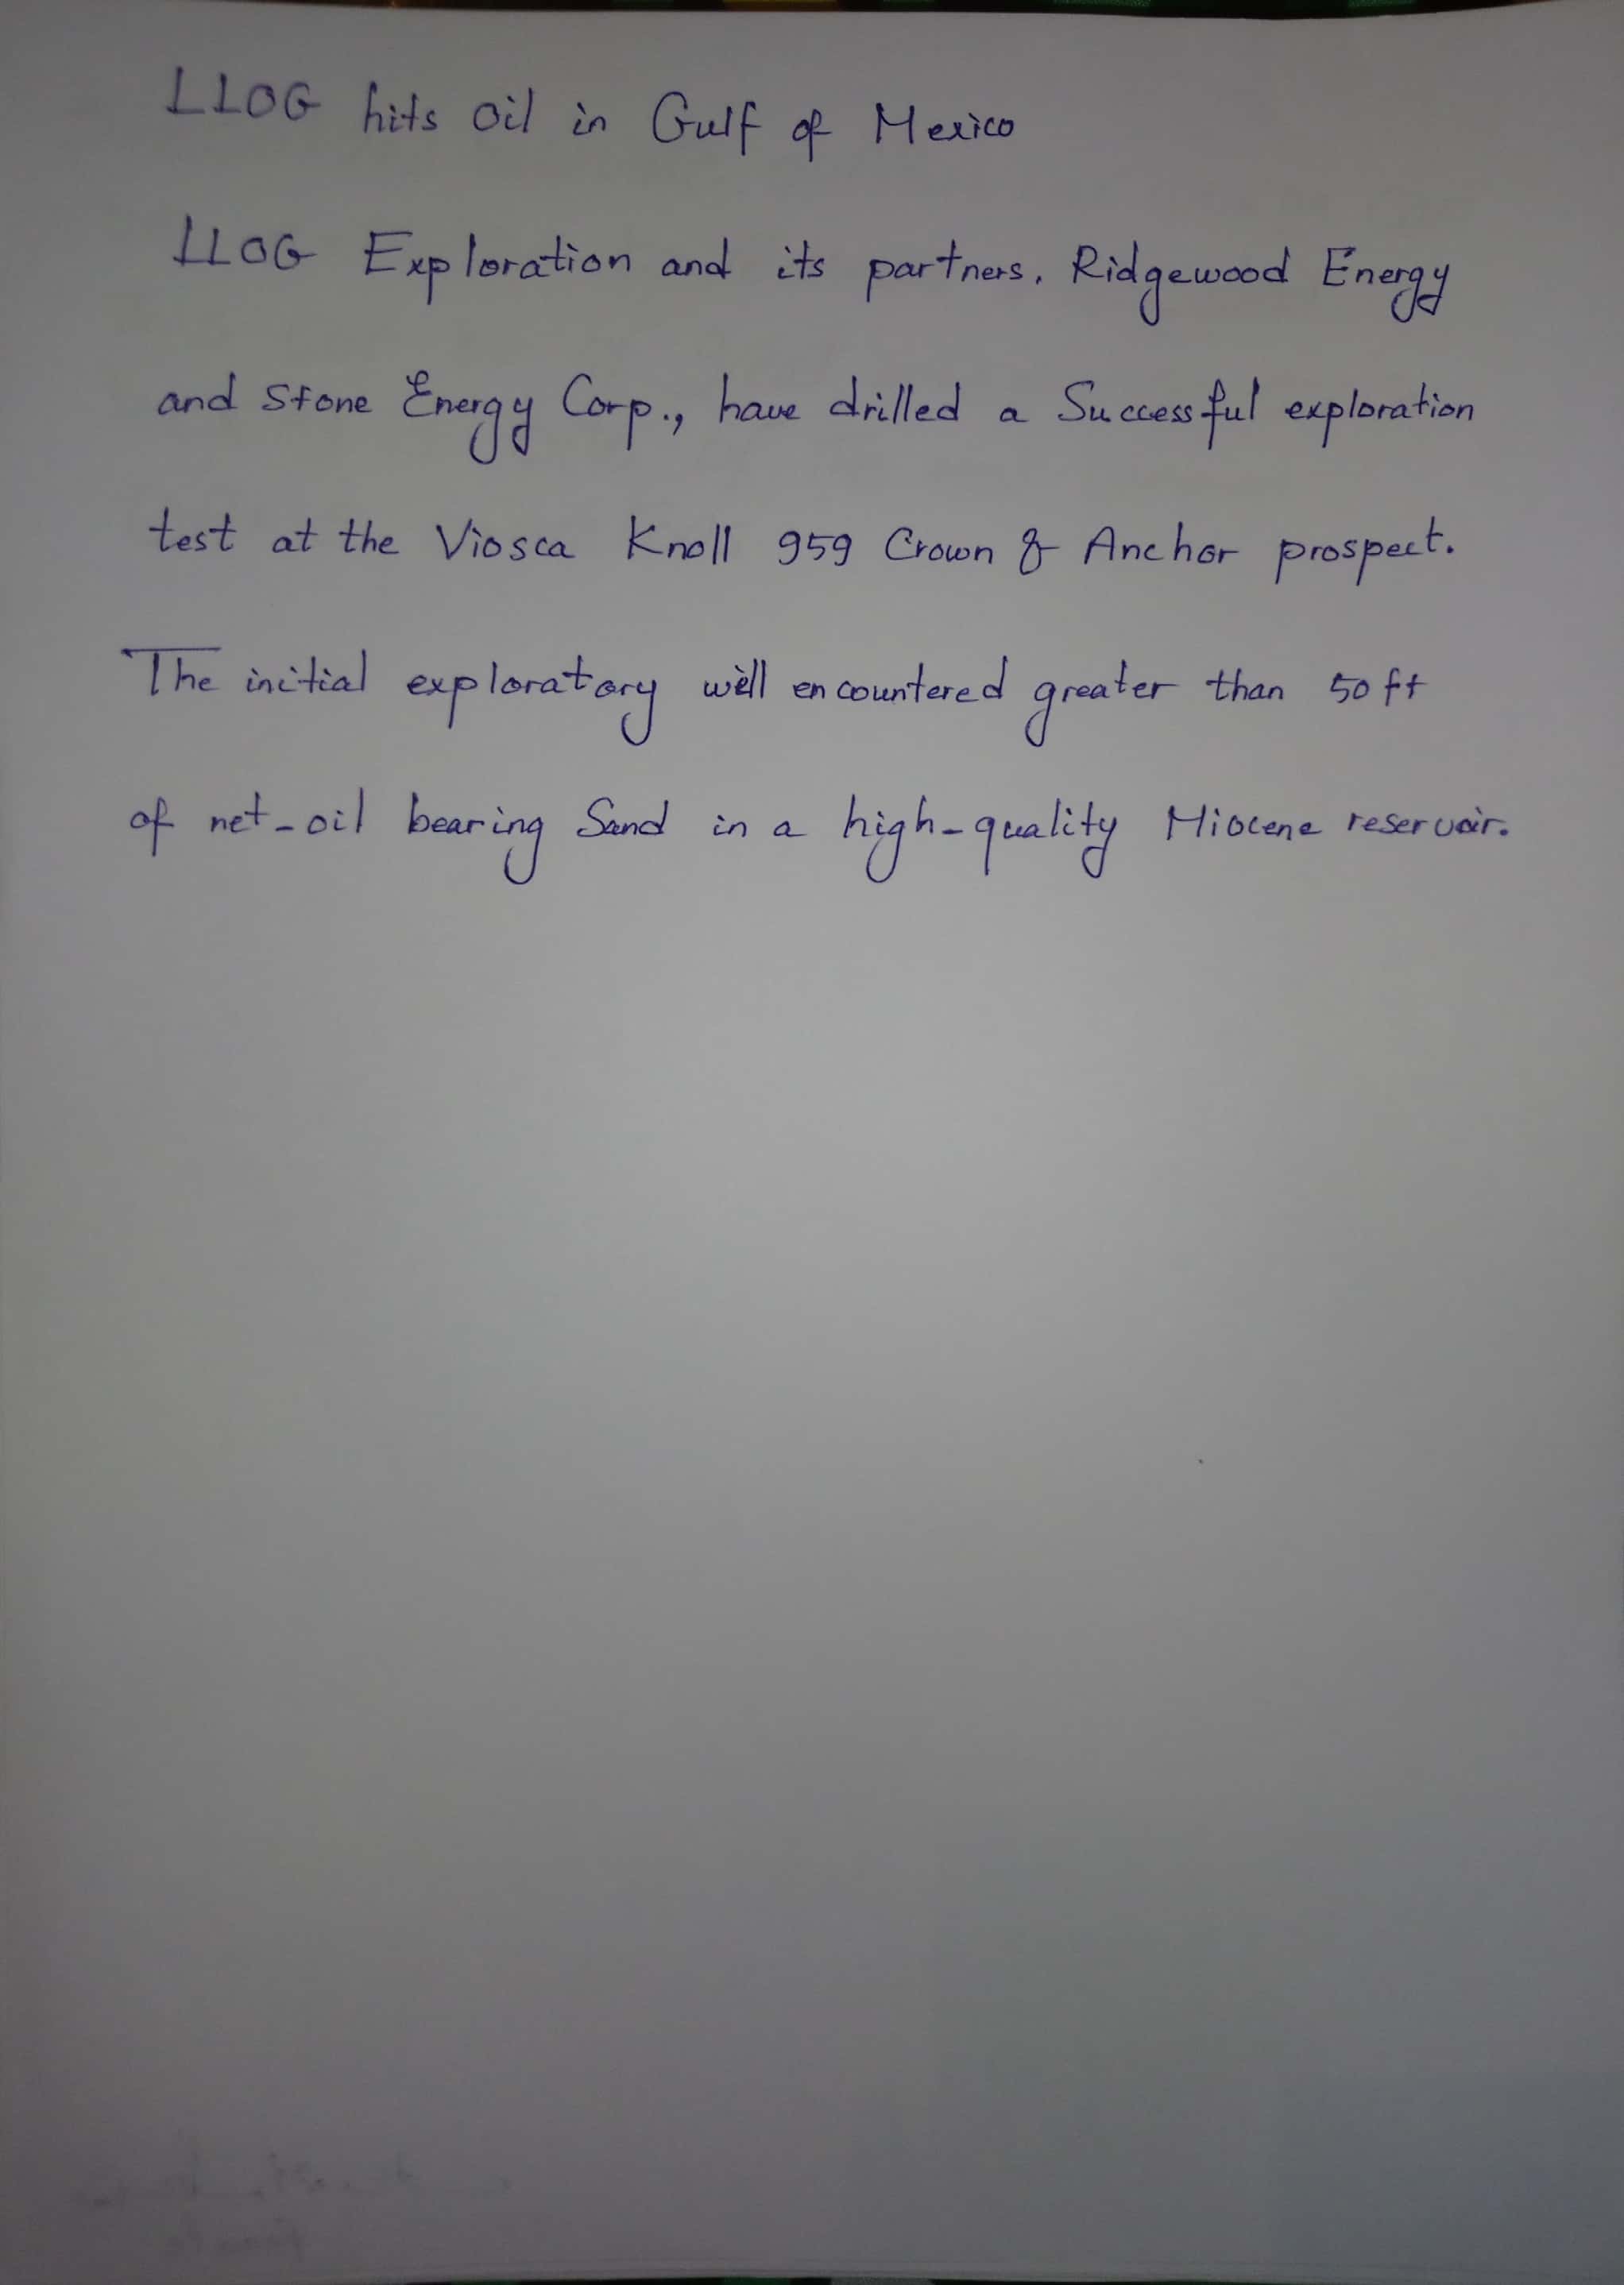 LLOG hits oil in Gulf of Mexico
LLOG Exploration and its partners, Ridgewood Energy
and Stone Energy Corp., have drilled a Successful exploration
test at the Viosca Knoll 959 Crown & Anchor prospect.
The initial exploratory well encountered greater than 50 ft
of net-oil bearing Sand in a high-quality Miocene reservoir.